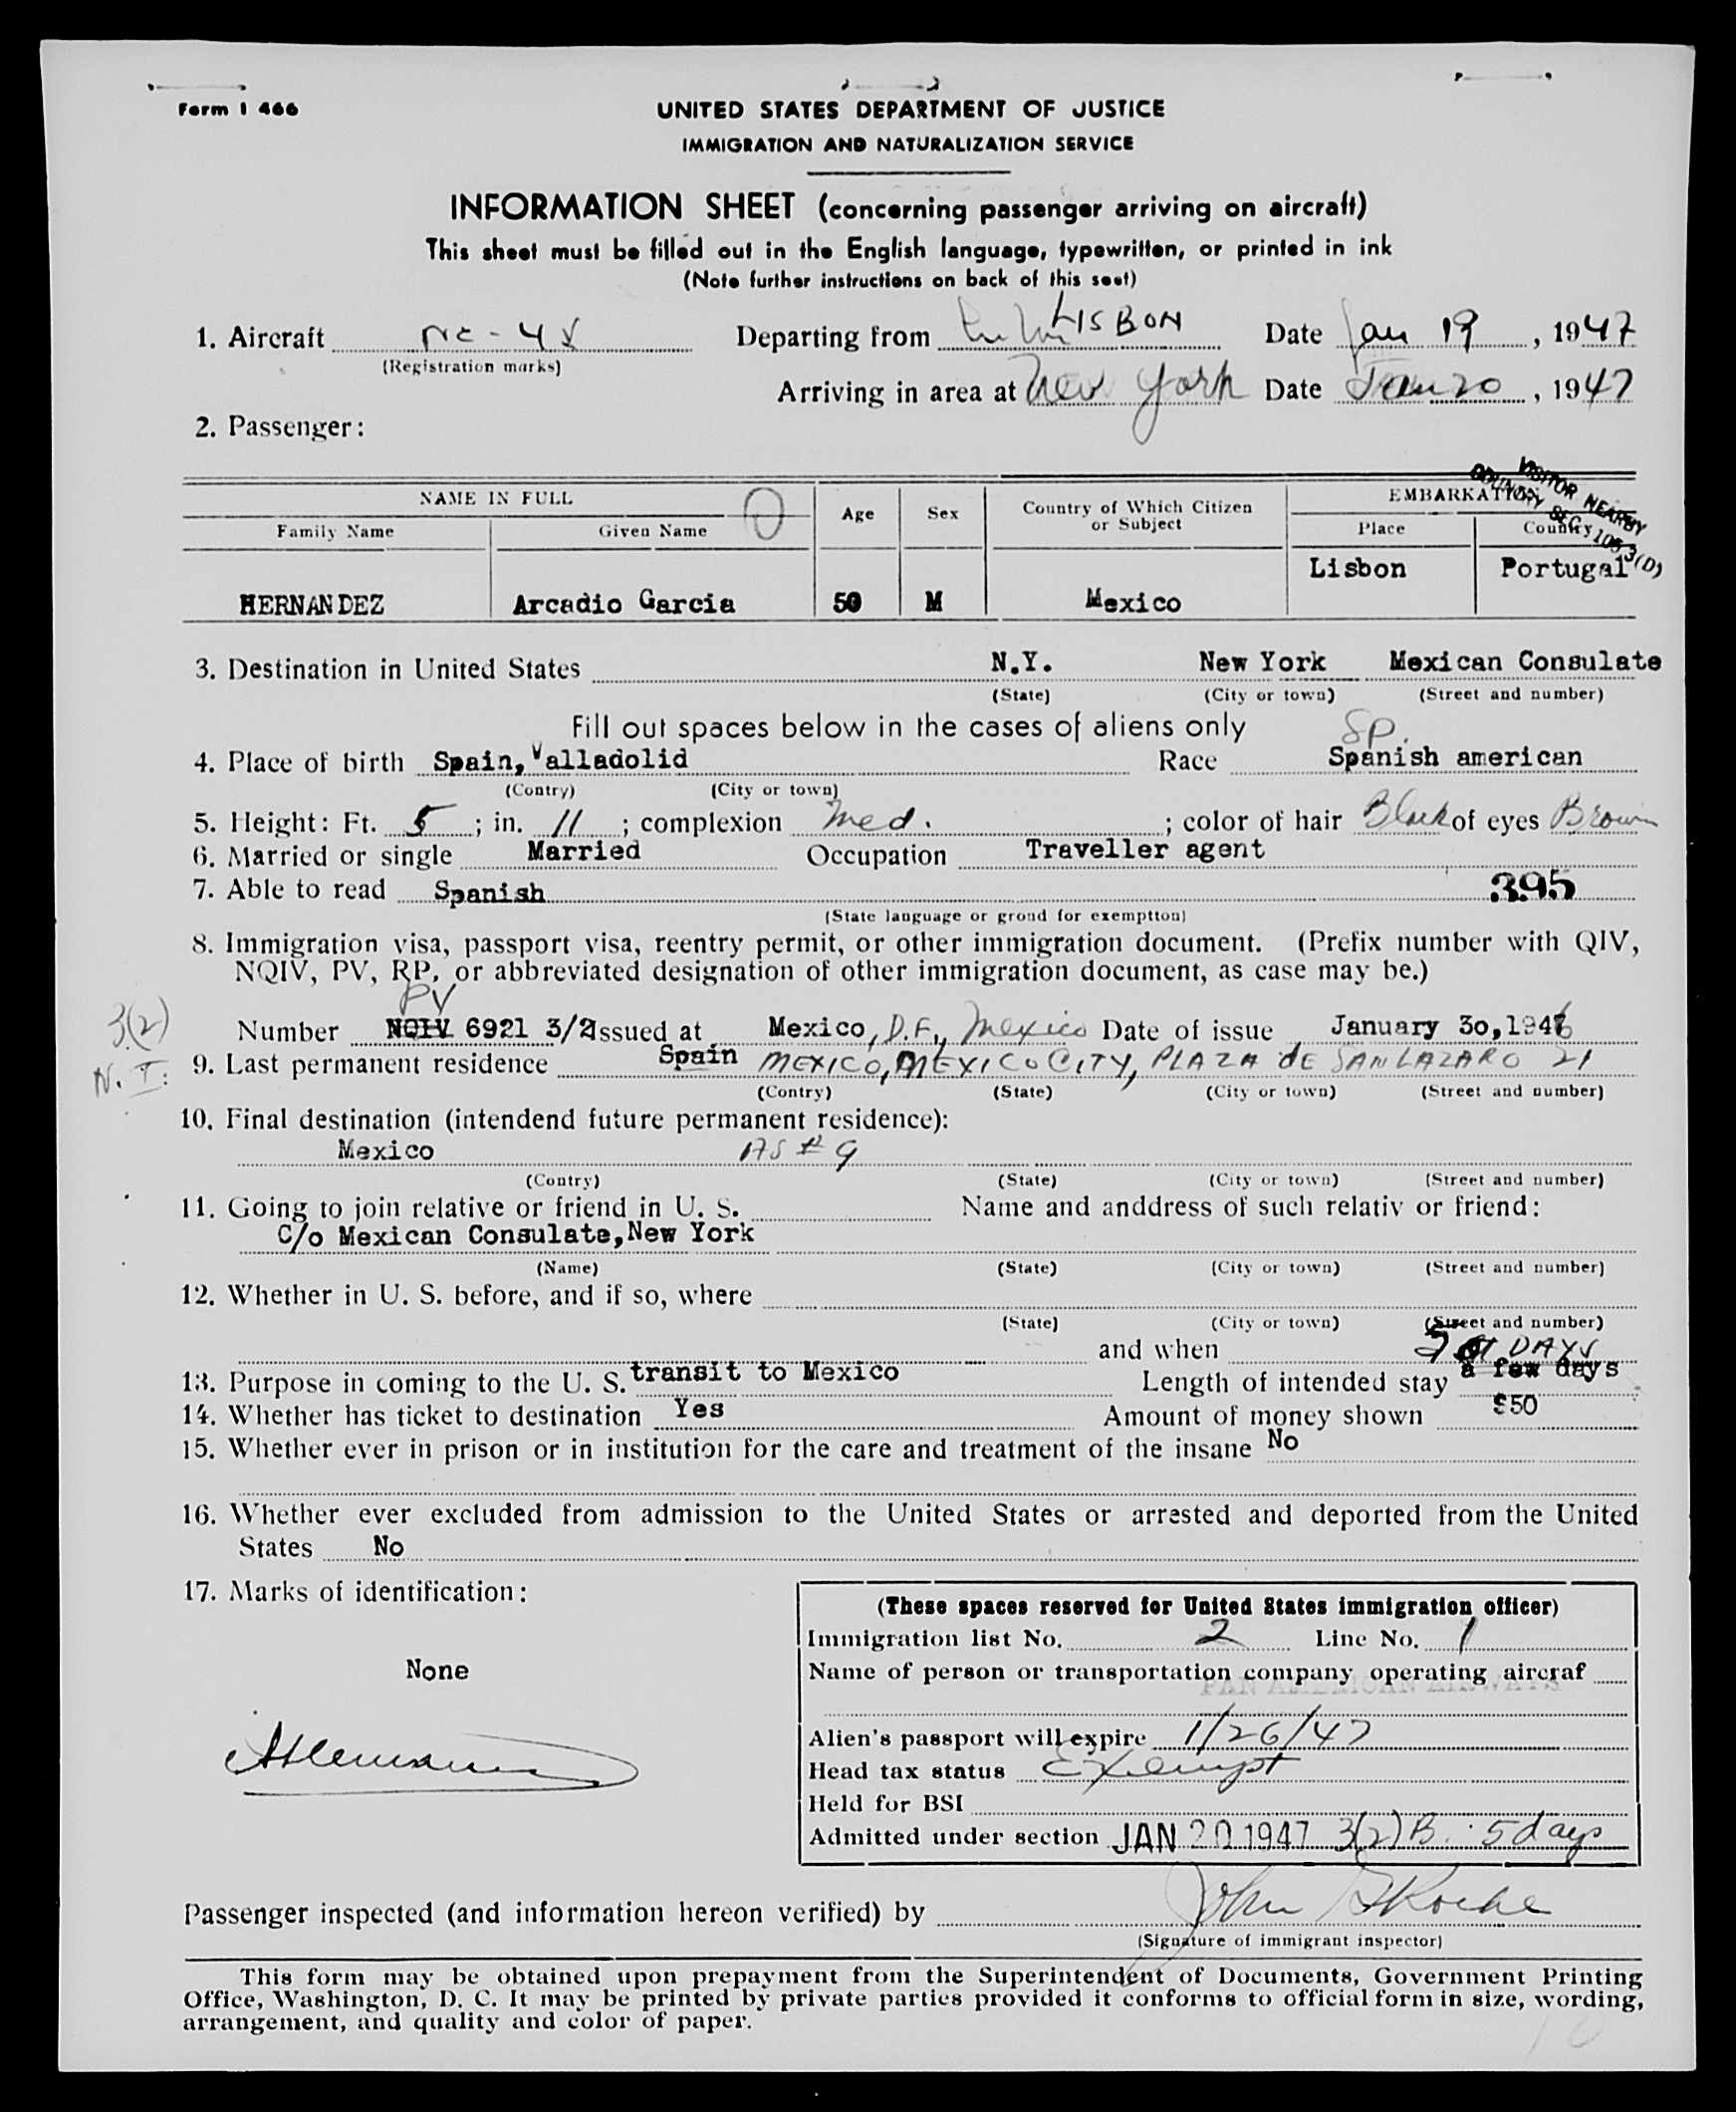 Form I 466
UNITED STATES DEPARTMENT OF JUSTICE
IMMIGRATION AND NATURALIZATION SERVICE
INFORMATION SHEET (concerning passenger arriving on aircraft)
This sheet must be filled out in the English language, typewritten, or printed in ink
(Note further instructions on back of this seet)
1. Aircraft NC - 4 Departing from LISBON Date Jan 19, 1947
(Registration marks)
Arriving in area at New York Date Jan 20, 1947
2. Passenger:
VISITOR NEARBY
COUNTRY SEC 10 3(D)
NAME IN FULL Age Sex Country of Which Citizen or Subject EMBARKATION
Family Name Given Name Place Country
HERNANDEZ Arcadio Garcia 50 M Mexico Lisbon Portugal
3. Destination in United States N.Y. New York Mexican Consulate
(State) (City or town) (Street and number)
Fill out spaces below in the cases of aliens only
Sp.
4. Place of birth Spain, Valladolid Race Spanish american
(Contry) (City or town)
5. Height: Ft. 5; in. 11; complexion Med.; color of hair Black of eyes Brown
6. Married or single Married Occupation Traveller agent
7. Able to read Spanish 395
(State language or groud for exemptton)
8. Immigration visa, passport visa, reentry permit, or other immigration document. (Prefix number with QIV,
NQIV, PV, RP, or abbreviated designation of other immigration document, as case may be.)
PV
3(2)
Number NQIV 6921 3/2 Issued at Mexico, D.F., Mexico Date of issue January 30, 1946
N.I.
9. Last permanent residence Spain MEXICO, MEXICO CITY, PLAZA dE SAN LAZARO 21
(Contry) (State) (City or town) (Street and number)
10. Final destination (intendend future permanent residence):
Mexico AS # 9
(Contry) (State) (City or town) (Street and number)
11. Going to join relative or friend in U. S. Name and anddress of such relativ or friend:
C/o Mexican Consulate, New York
(Name) (State) (City or town) (Street and number)
12. Whether in U. S. before, and if so, where
(State) (City or town) (Street and number)
and when
DAYS
13. Purpose in coming to the U. S. transit to Mexico Length of intended stay a few days
14. Whether has ticket to destination Yes Amount of money shown $50
15. Whether ever in prison or in institution for the care and treatment of the insane No
16. Whether ever excluded from admission to the United States or arrested and deported from the United
States No
17. Marks of identification:
None
(These spaces reserved for United States immigration officer)
Immigration list No. 2 Line No. 1
Name of person or transportation company operating aircraf
PAN AMERICAN AIRWAYS
Alien's passport will expire 1/26/47
Head tax status Exempt
Held for BSI
Admitted under section JAN 20 1947 3(2) B. 5 days
Passenger inspected (and information hereon verified) by John Roche
(Signature of immigrant inspector)
This form may be obtained upon prepayment from the Superintendent of Documents, Government Printing
Office, Washington, D. C. It may be printed by private parties provided it conforms to official form in size, wording,
arrangement, and quality and color of paper.